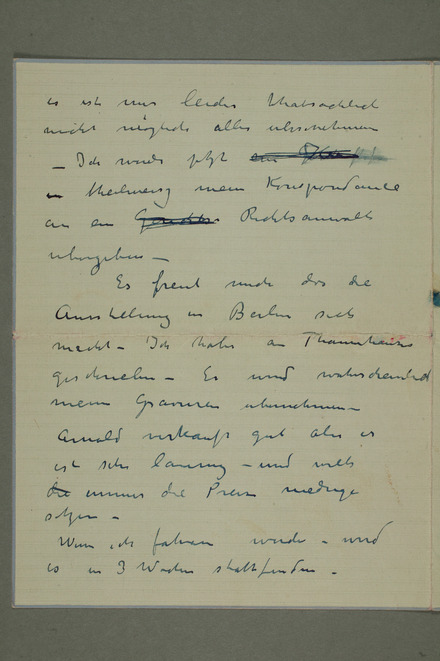 es ist mir leider thatsächlich
nicht möglich alles übernehmen
– Ich werde jetzt ein
theilweise meine Korrespondance
an ein Rechtsanwalt
übergeben –
Es freut mich das die
Ausstellung in Berlin sich
macht – Ich habe an Thannhauser
geschrieben – Er wird wahrscheinlich
meine Gravuren übernehmen –
Arnold verkauft gut aber er
ist sehr – und will
die immer die Preise niedrige
setzen –
Wenn ich fahren werde – wird
es in 3 Wochen stattfinden –